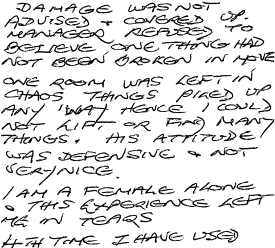 DAMAGE WAS NOT
ADVISED & COVERED UP.
MANAGER REFUSED TO
BELIEVE ONE THING HAD
NOT BEEN BROKEN IN MOVE
ONE ROOM WAS LEFT IN
CHAOS THINGS PILED UP
ANY 'WAY HENCE I COULD
NOT LIFT OR FIND MANY
THINGS. HIS ATTITUDE
WAS DEFENSIVE & NOT
VERY NICE.
I AM A FEMALE ALONE
& THIS EXPERIENCE LEFT
ME IN TEARS
4TH TIME I HAVE USED